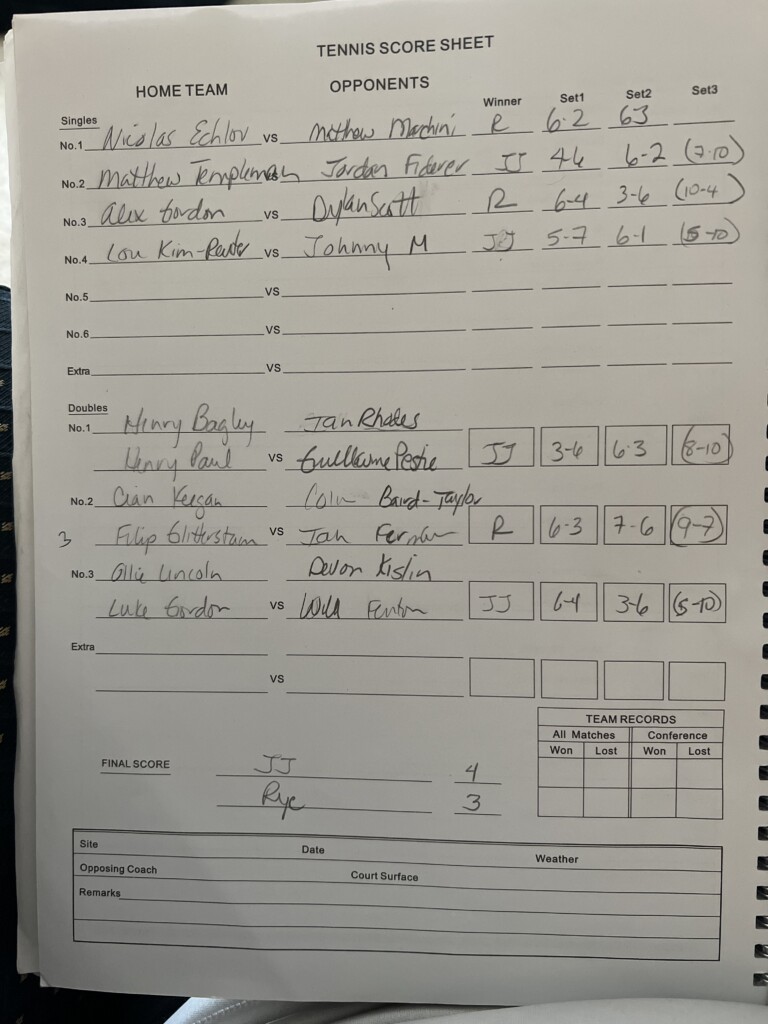 TENNIS SCORE SHEET
HOME TEAM OPPONENTS Winner Set1 Set2 Set3
Singles
No.1 Nicolas Echlov vs Matthew Marchini R 6-2 63
No.2 Matthew Templeman vs Jordan Fiderer JJ 46 6-2 (7-10)
No.3 Alex Gordon vs Dylan Scott R 6-4 3-6 (10-4)
No.4 Lou Kim- vs Johnny M JJ 5-7 6-1 (5-10)
No.5 vs
No.6 vs
Extra vs
Doubles
No.1 Henry Bagley Ian Rhodes
Henry Paul vs Guillaume JJ 3-6 6-3 (8-10)
No.2 Cian Keegan Colin Baird-Taylor
3 Filip Glitterstam vs R 6-3 7-6 (9-7)
No.3 Ollie Lincoln Devon Kislin
Luke Gordon vs Will Fenton JJ 6-4 3-6 (5-10)
Extra
vs
TEAM RECORDS
All Matches Conference
Won Lost Won Lost
FINAL SCORE JJ 4
Rye 3
Site Date Weather
Opposing Coach Court Surface
Remarks